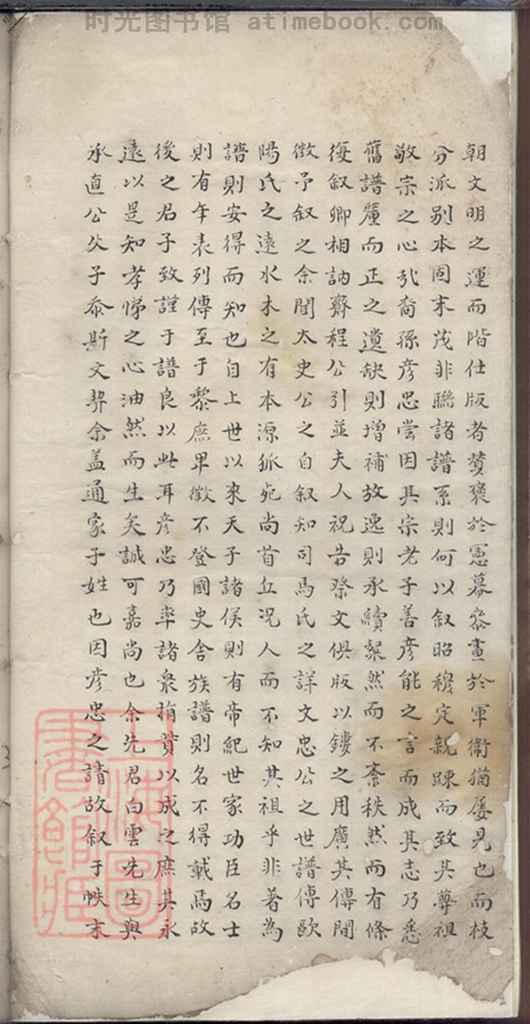 时光图书馆 atimebook.com
朝文明之運而階仕版者贊襄於憲幕參畫於軍衛猶屡見也而枝
分派别本固末茂非聯諸譜系則何以叙昭穆定親踈而致其尊祖
敬宗之心哉裔孫彦忠嘗因其宗老子善彦能之言而成其志乃悉
舊譜釐而正之遺缺則增補故逸則承續粲然而不紊秩然而有條
復叙卿相訥齋程公引並夫人祝告祭文俱版以鏤之用廣其傳間
徴予叙之余聞太史公之自叙知司馬氏之詳文忠公之世譜傳歐
陽氏之遠水木之有本源狐死尚首丘况人而不知其祖乎非著為
譜則安得而知也自上世以來天子諸侯則有帝紀世家功臣名士
則有年表列傳至于黎庶畢徴不登國史舍族譜則名不得載焉故
後之君子致謹于譜良以此耳彦忠乃率諸衆捐貲以成之庶其永
遠以是知孝悌之心油然而生矣誠可嘉尚也余先君白雲先生與
承直公父子忝斯文契余盖通家子姓也因彦忠之請故叙于帙末